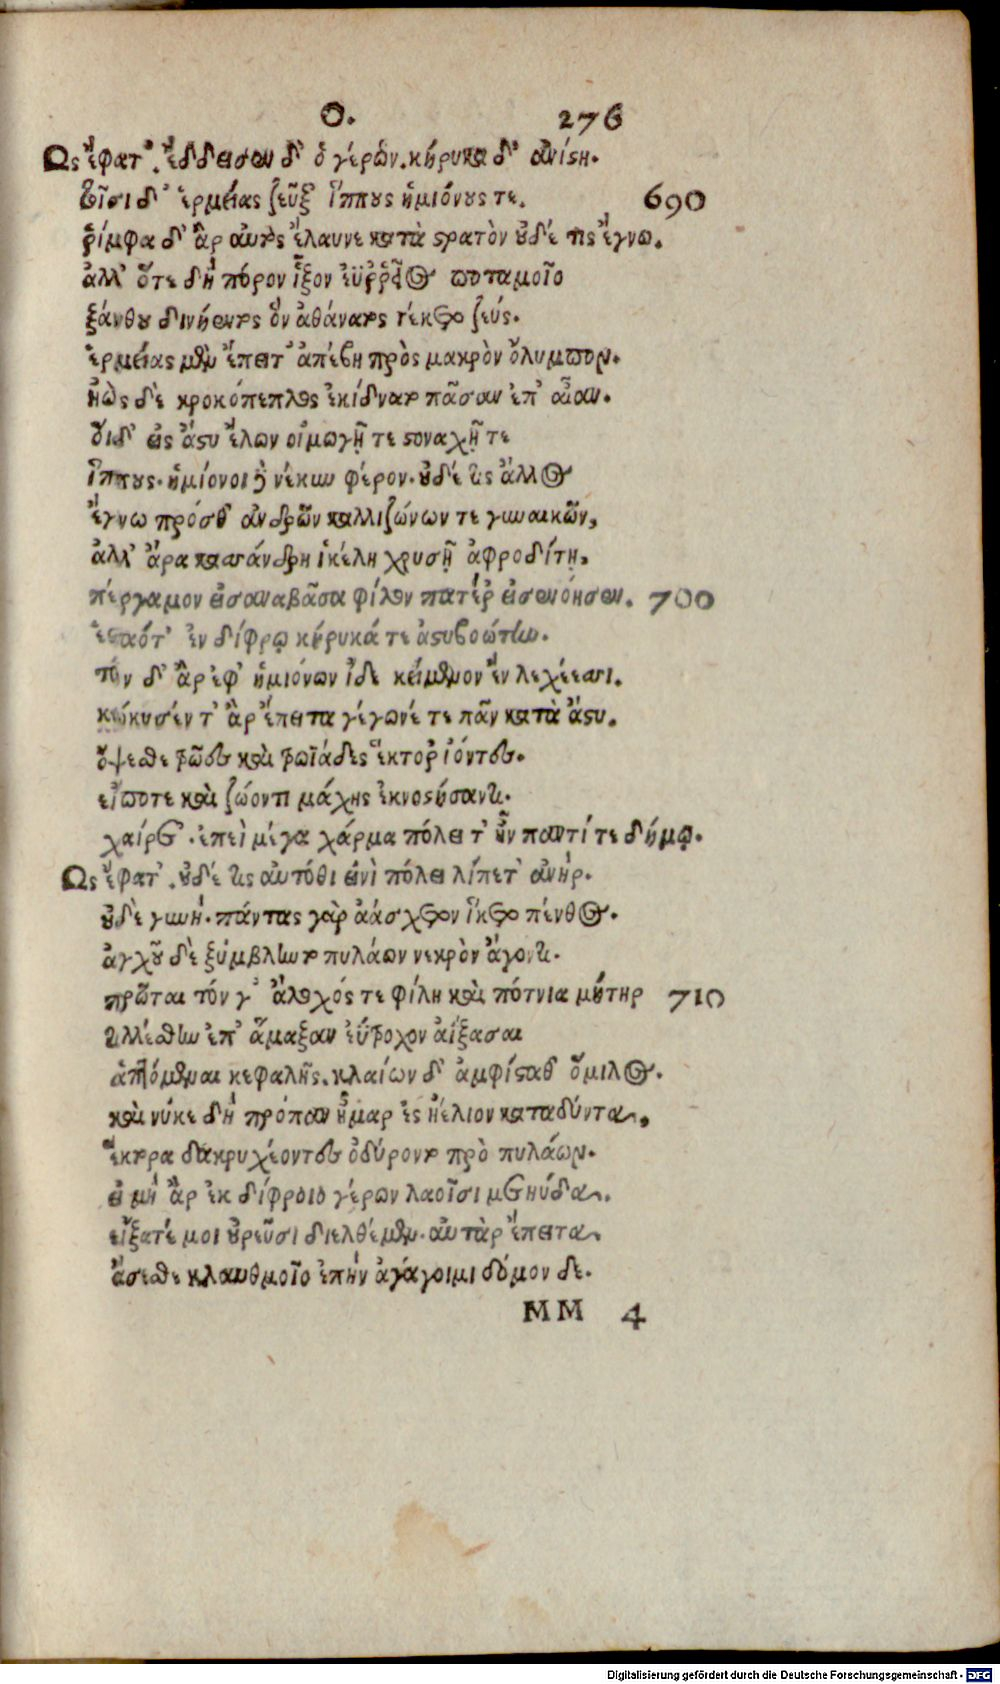 Ω. 276
Ὣς ἔφατ᾽. ἔδδεισεν δ᾽ ὁ γέρων. κήρυκα δ᾽ ἀνίστη.
τοῖσι δ᾽ ἑρμείας ζεῦξ᾽ ἵππους ἡμιόνους τε. 690
ῥίμφα δ᾽ ἂρ αὐτὸς ἔλαυνε κατὰ στρατὸν οὐδέ τις ἔγνω.
ἀλλ᾽ ὅτε δὴ πόρον ἷξον ἐϋῤῥεῖος ποταμοῖο
ξάνθου δινήεντος ὃν ἀθάνατος τέκετο ζεύς.
ἑρμείας μὲν ἔπειτ᾽ ἀπέβη πρὸς μακρὸν ὄλυμπον.
ἠὼς δὲ κροκόπεπλος ἐκίδνατο πᾶσαν ἐπ᾽ αἶαν.
οἱ δ᾽ εἰς ἄστυ ἔλων οἰμωγῇ τε στοναχῇ τε
ἵππους. ἡμίονοι δὲ νέκυν φέρον. οὐδέ τις ἄλλος
ἔγνω πρόσθ᾽ ἀνδρῶν καλλιζώνων τε γυναικῶν,
ἀλλ᾽ ἄρα κασσάνδρη ἰκέλη χρυσῇ ἀφροδίτῃ,
πέργαμον εἰσαναβᾶσα φίλον πατέρ᾽ εἰσενόησεν. 700
ἑσταότ᾽ ἐν δίφρῳ κήρυκά τε ἀστυβοώτην.
τὸν δ᾽ ἂρ ἐφ᾽ ἡμιόνων ἴδε κείμενον ἐν λεχέεσσι.
κώκυσέν τ᾽ ἂρ ἔπειτα γέγωνέ τε πᾶν κατὰ ἄστυ.
ὄψεσθε τρῶες καὶ τρωϊάδες ἕκτορ᾽ ἰόντες.
εἴποτε καὶ ζώοντι μάχης ἐκνοστήσαντι.
χαίρετ᾽. ἐπεὶ μέγα χάρμα πόλει τ᾽ ἦν παντί τε δήμῳ.
Ὣς ἔφατ᾽. οὐδέ τις αὐτόθι ἐνὶ πόλει λίπετ᾽ ἀνήρ.
οὐδὲ γυνή. πάντας γὰρ ἀάσχετον ἵκετο πένθος.
ἀγχοῦ δὲ ξύμβληντο πυλάων νεκρὸν ἄγοντι.
πρῶται τόν γ᾽ ἄλοχός τε φίλη καὶ πότνια μήτηρ 710
τιλλέσθην ἐπ᾽ ἄμαξαν ἐΰτροχον ἀΐξασαι
ἁπτόμεναι κεφαλῆς. κλαίων δ᾽ ἀμφίσταθ᾽ ὅμιλος.
καὶ νύκε δὴ πρόπαν ἦμαρ ἐς ἠέλιον καταδύντα,
ἕκτορα δακρυχέοντες ὀδύροντο πρὸ πυλάων.
εἰ μὴ ἂρ ἐκ δίφροιο γέρων λαοῖσι μετηύδα.
εἴξατέ μοι οὐρεῦσι διελθέμεν. αὐτὰρ ἔπειτα
ἄσεσθε κλαυθμοῖο ἐπὴν ἀγάγοιμι δόμον δε.
MM 4
Digitalisierung gefördert durch die Deutsche Forschungsgemeinschaft - DFG